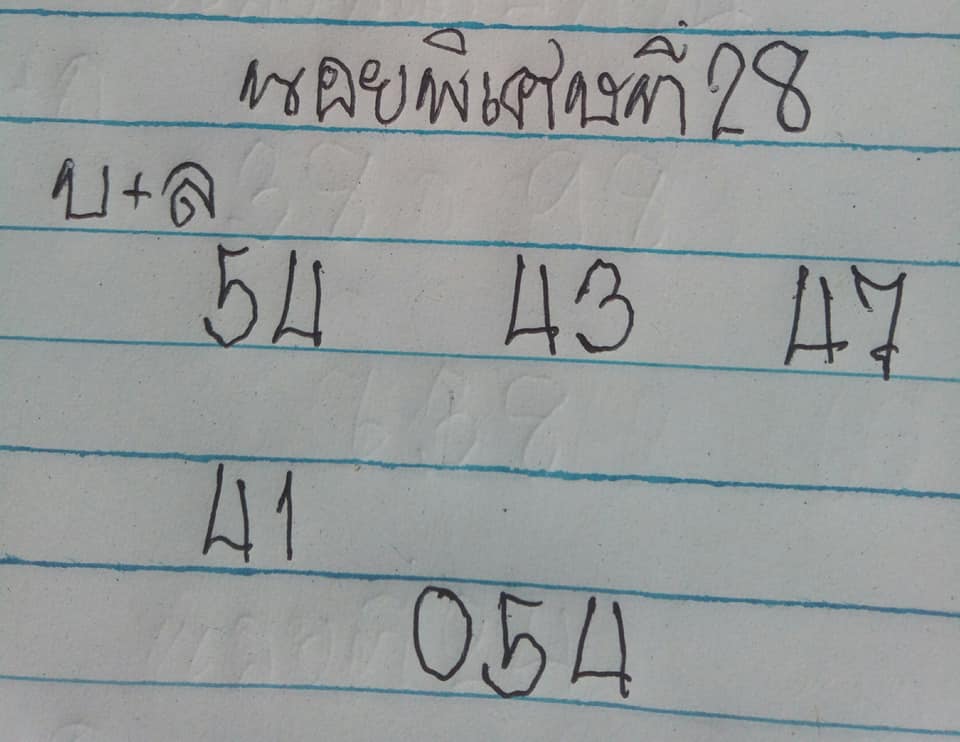 หรอยพิเศษที่ 28
บ+ล
54 43 47
41
054